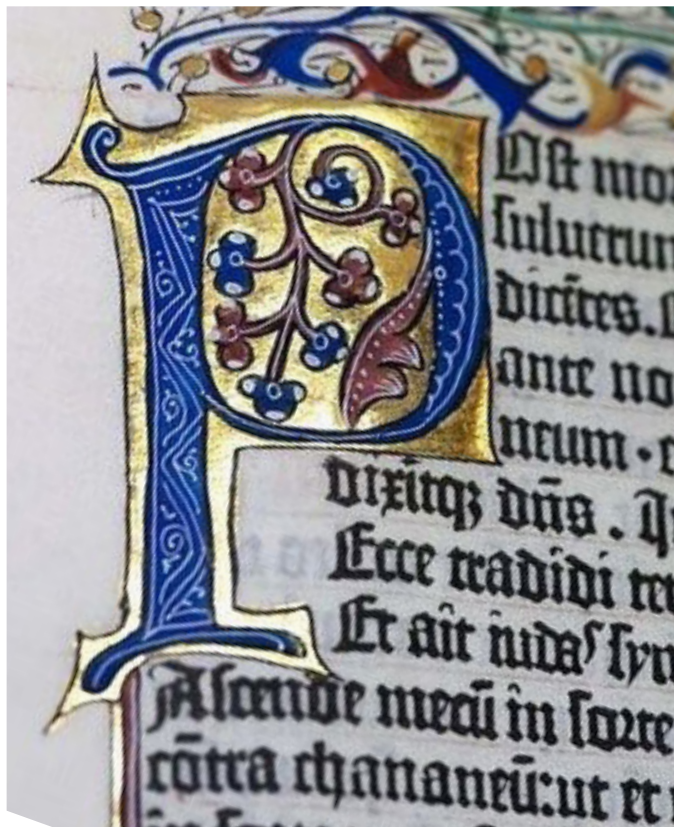 POſt mor
ſuluerun
dicētes.
ante no
neum · e
dixitqꝫ dn̄s .
Ecce tradidi ter
Et ait iudas ſym
Aſcende mecū in ſorte
cōtra chananeū: ut et